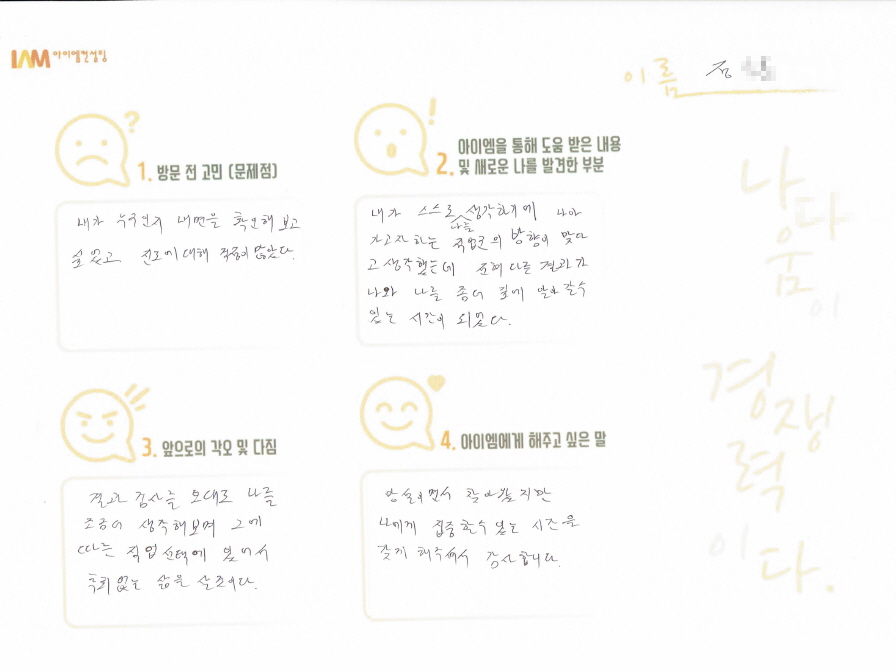 IAM 아이엠컨설팅
이름
1. 방문 전 고민 (문제점)
내가 누구인지 내면을 확인해 보고
싶었고, 진로에 대해 걱정이 많았다.
2. 아이엠을 통해 도움 받은 내용
및 새로운 나를 발견한 부분
내가 스스로 나를 생각하기에 나아
가고자하는 직업군의 방향이 맞다
고 생각했는데 전혀 다른 결과가
나와 나를 좀더 깊에 알아갈수
있는 시간이 되었다.
3. 앞으로의 각오 및 다짐
결과 검사를 토대로 나를
조금더 생각해보며 그에
따는 직업선택에 있어서
후회없는 삶을 살것이다.
4. 아이엠에게 해주고 싶은 말
망설이면서 찾아왔지만
나에게 집중할수 있는 시간을
갖게 해주셔서 감사합니다.
나다움이
경쟁력이다.